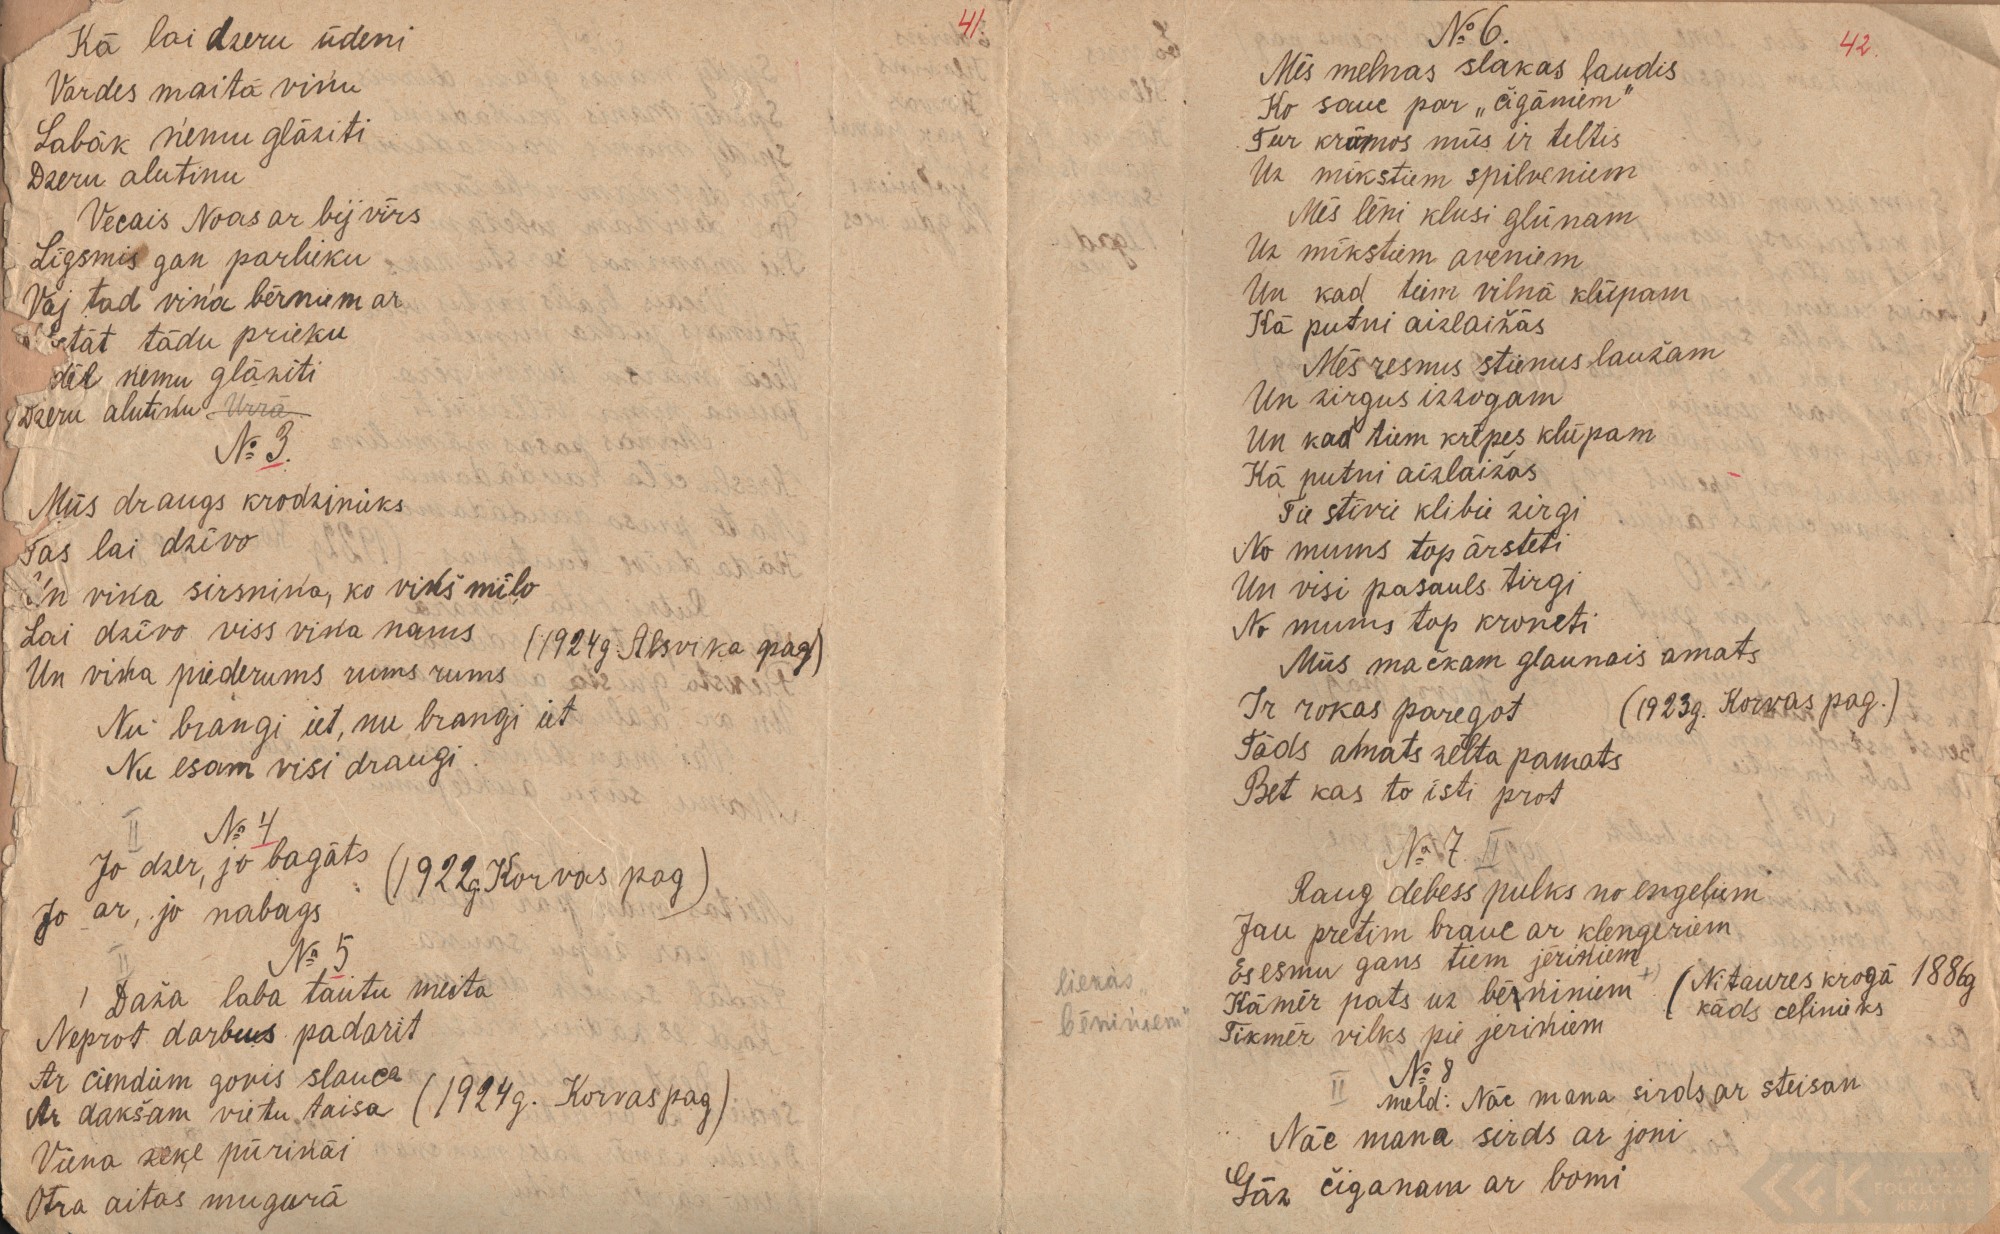 41.
Kā lai dzeru ūdeni
Vardes maitā viņu
Labāk ņemu glāzīti
Dzeru alutiņu
Vecais Noas ar bij vīrs
Līgsmis gan parlieku
Vaj tad viņa bērniem ar
stāt tādu prieku
dēl ņemu glāzīti
Dzeru alutiņu Urrā
№ 3.
Mūs draugs krodzinieks
Tas lai dzīvo
Un viņa sirsniņa, ko viņš mīlo
Lai dzīvo viss viņa nams
Un viņa piederums rums rums
(1924g. Alsviķa pag)
Nu brangi iet, nu brangi iet
Nu esam visi draugi.
II
№ 4
Jo dzer, jo bagāts
Jo ar, jo nabags
(1922g. Korvas pag)
II
№ 5
1 Daža laba tautu meita
Neprot darbus padarit
Ar ciendiem govis slauca
Ar dakšam vietu taisa
(1924g. Korvas pag)
Viena zeķe pūriņāi
Otra aitas mugurā
42.
№ 6.
Mēs melnas slakas ļaudis
Ko sauc par „čigāniem"
Tur krūmos mūs ir teltis
Uz mīkstiem spilveniem
Mēs lēni klusi glūnam
Uz mīkstiem aveniem
Un kad tiem vilnā klūpam
Kā putni aizlaižās
Mēs resnus stienus laužam
Un zirgus izzogam
Un kad tiem krēpes klūpam
Kā putni aizlaižas
Tie stīvie klibie zirgi
No mums top ārsteti
Un visi pasauls tirgi
No mums top kroneti
Mūs mačkam glaunais amats
Ir rokas paregot
(1923g. Korvas pag.)
Tāds amats zelta pamats
Bet kas to īsti prot
№ 7. II
Raug debess pulks no engeļiem
Jau pretim brauc ar klengeriem
Es esmu gans tiem jēriņiem
Kāmēr pats uz bērniniem +)
Tikmēr vilks pie jēriņiem
(Nītaures krogā 1886g
kāds ceļinieks
liekas „
bēniņiem"
II
№ 8
meld: Nāc mana sirds, ar steisan
Nāc mana sirds ar joni
Gāz čiganam ar bomi